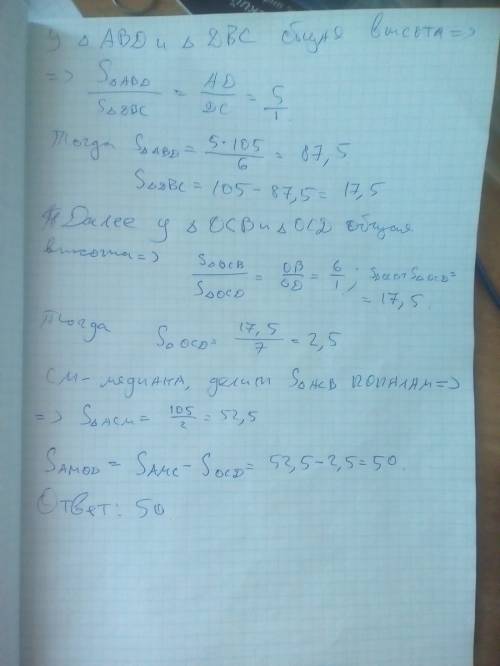 У △ ABD и △ DBC общая высота =>
=> S△ABD / S△DBC = AD / DC = 5 / 1
Тогда S△ABD = 5·105 / 6 = 87,5
S△DBC = 105 - 87,5 = 17,5
Далее у △ OCB и △ OCD общая
высота => S△OCB / S△OCD = OB / OD = 6 / 1 ;
= 17,5.
Тогда S△OCD = 17,5 / 7 = 2,5
CM - медиана, делит S△ACB ПОПАЛАМ =>
=> S△ACM = 105 / 2 = 52,5
SAMOD = SAMC - SOCD = 52,5 - 2,5 = 50.
Ответ: 50